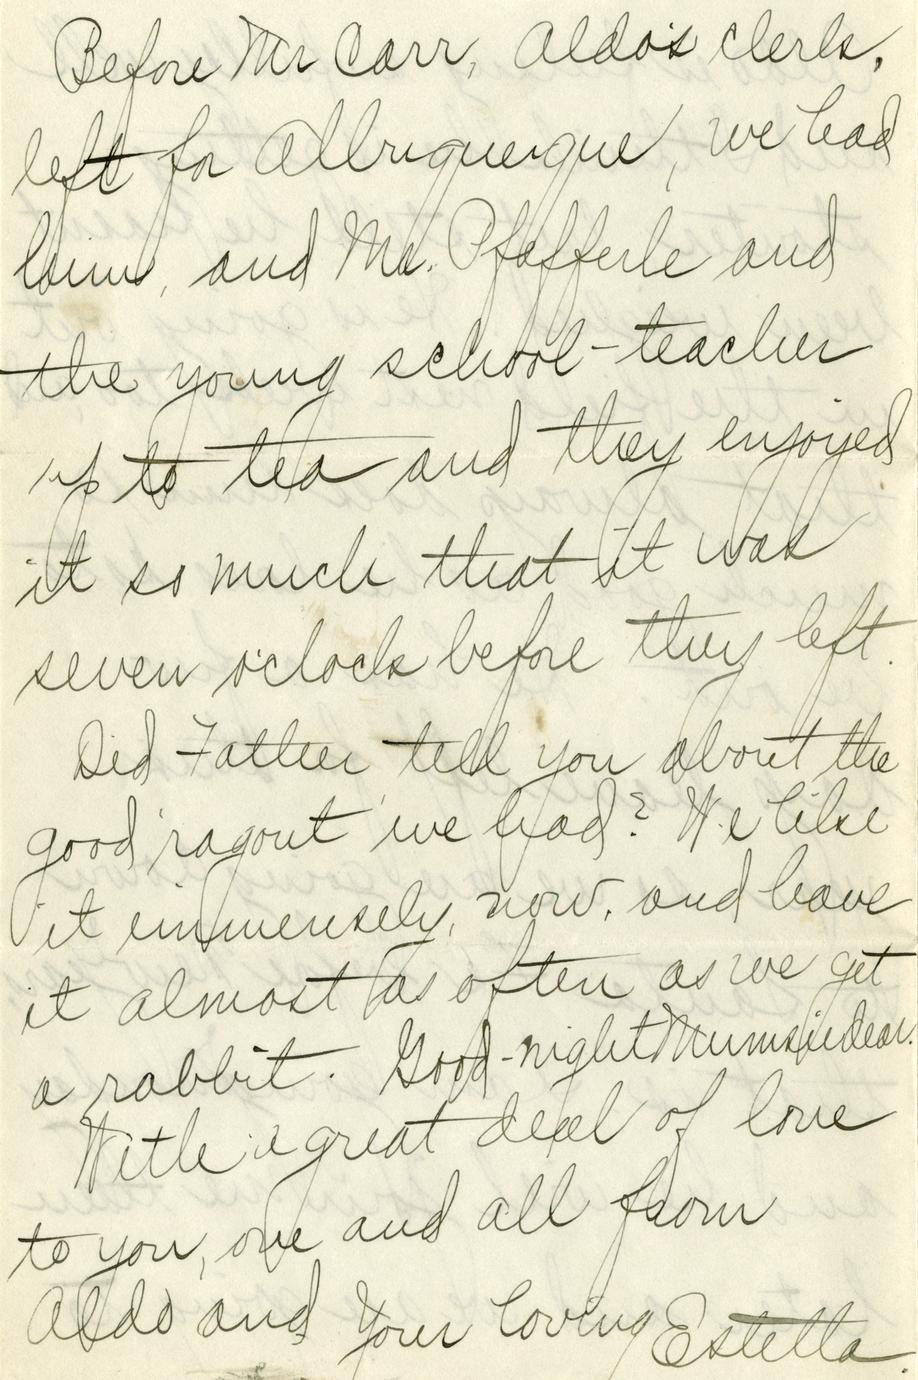 Before Mr Carr, Aldo's clerk,
left for Albuquerque, we had
him, and Mr. Pfafferle and
the young school-teacher
up to tea and they enjoyed
it so much that it was
seven o'clock before they left.
Did Father tell you about the
good ragout we had? We like
it immensely, now, and have
it almost as often as we get
a rabbit. Good-night Mumsie dear.
With a great deal of love
to you, one and all from
Aldo and Your loving Estella.